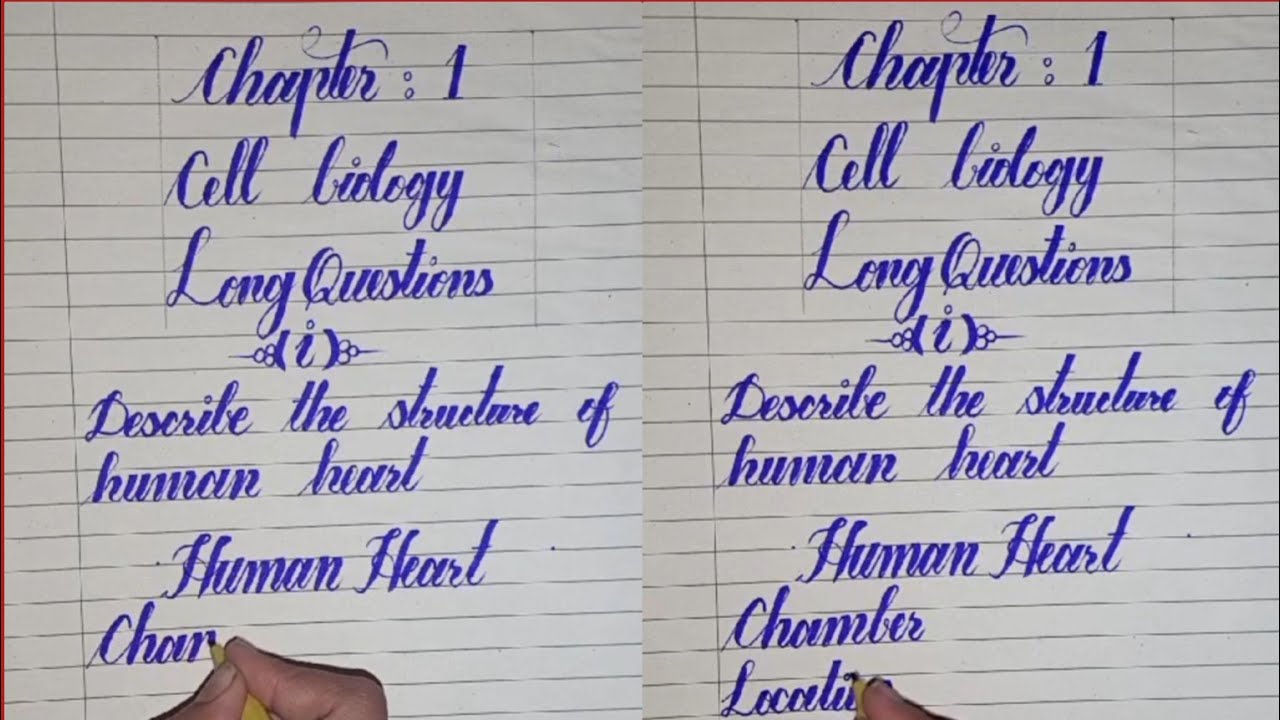 Chapter : 1
Cell biology
Long Questions
(i)
Describe the structure of
human heart
Human Heart
Cham
Chapter : 1
Cell biology
Long Questions
(i)
Describe the structure of
human heart
Human Heart
Chamber
Locati